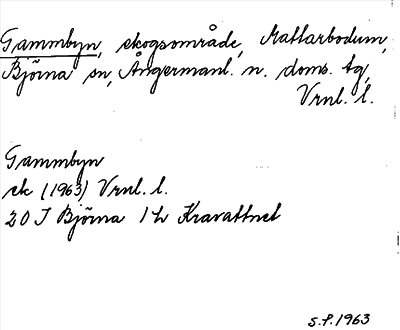 Gammbyn, skogsområde, Mattarbodum,
Björna sn, Ångermanl. n. doms. tg,
Vrnl. l.
Gammbyn
sk (1963) Vrnl. l.
20 J Björna 1 h Kravattnet
S.P. 1963